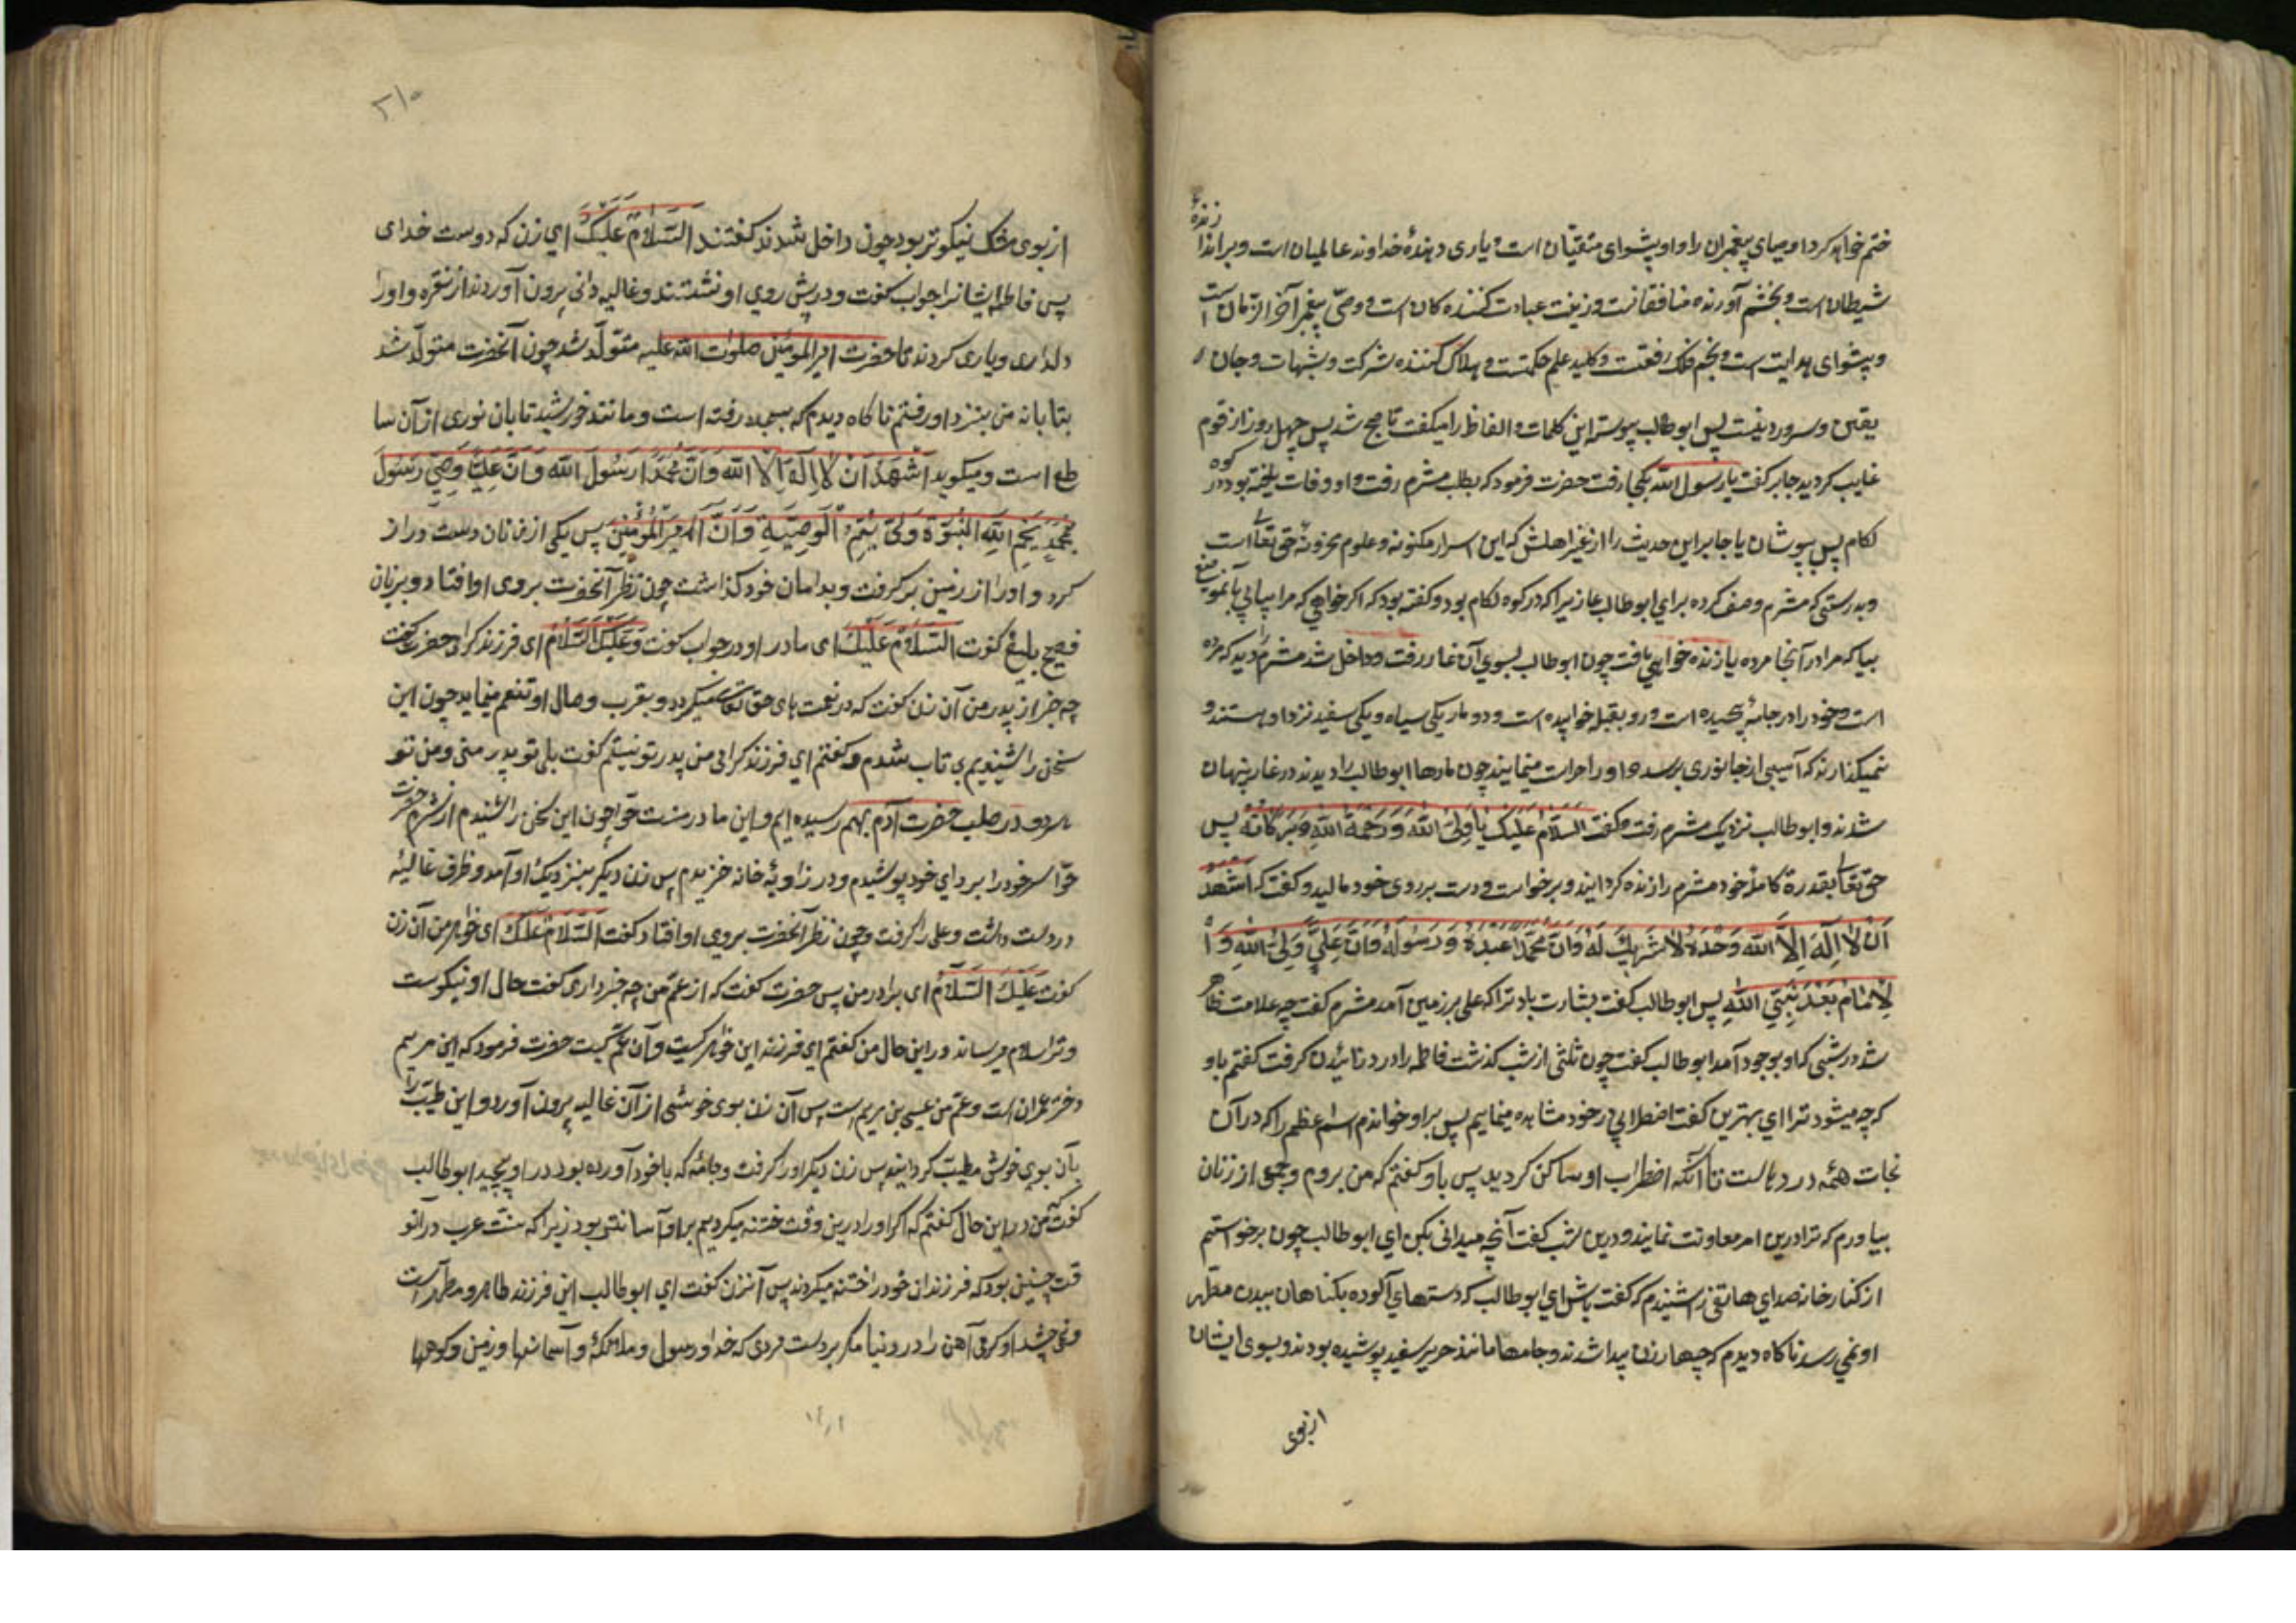 ختم خواهد کرد اوصیای پیغمبران را و او پیشوای متقیان است و یاری دهندهٔ خداوند عالمیان است و براندازندهٔ
شیطان است و بخشم آورنده منافقانست و زینت عبادت کننده کان است و وصی پیغمبر آخر الزمان است
و پیشوای هدایت است و نجم فلک رفعتست و کلید علم حکمتست و هلاک کننده شرکت و شبهات و جان
یقین و سرور دینست پس ابو طالب پیوسته این کلمات و الفاظ را میکفت تا صبح شد پس چهل روز از قوم
غایب کردید جابر کفت یا رسول الله بکجا رفت حضرت فرمود که بطلب مشرم رفت و او وفات یافته بود در کوه
لکام پس بپوشان یا جابر این حدیث را از غیر اهلش که این اسرار مکنونه و علوم مخزونهٔ حق تعالی است
و بدرستی که مشرم وصف کرده برای ابو طالب غازیرا که در کوه لکام بود و کفته بود که اکر خواهی که مرا بیابی بآن موضع
بیا که مرا در آنجا مرده یا زنده خواهی یافت چون ابو طالب بسوی آن غار رفت و داخل شد مشرم را دید که مرده
است و خود را در جامهٔ پیچیده است و رو بقبله خوابیده است و دو مار یکی سیاه و یکی سفید نزد او هستند و
نمیکذارند که آسیبی از جانوری برسد و او را حراست مینمایند چون مارها ابو طالب را دیدند در غار پنهان
شدند و ابو طالب نزدیک مشرم رفت و کفت السَّلَامُ عَلَیْکَ یَا وَلِیَّ اللهِ وَ رَحْمَةُ اللهِ وَ بَرَکَاتُهُ پس
حق تعالی بقدرة کاملهٔ خود مشرم را زنده کردانید و برخواست و دست بر روی خود مالید و کفت که اَشْهَدُ
اَنْ لَا اِلَهَ اِلَّا اللهُ وَحْدَهُ لَا شَرِیکَ لَهُ وَ اَنَّ مُحَمَّدًا عَبْدُهُ وَ رَسُولُهُ وَ اَنَّ عَلِیًّ وَلِیُّ اللهِ وَ ا
لْاِمَامُ بَعْدَ نَبِیِّ اللهِ پس ابو طالب کفت بشارت باد ترا که علی بر زمین آمد مشرم کفت چه علامت ظاهر
شد در شبی که او بوجود آمد ابو طالب کفت چون ثلثی از شب کذشت فاطمه را درد زائیدن کرفت کفتم باو
که چه میشود ترا ای بهترین کفت اضطرابی در خود مشاهده مینمایم پس بر او خواندم اسم اعظم را که در آن
نجات همهٔ دردهاست تا آنکه اضطراب او ساکن کردید پس باو کفتم که من بروم و جمعی از زنان
بیاورم که ترا درین امر معاونت نمایند و درین شب کفت آنچه میدانی بکن ای ابو طالب چون برخواستم
از کنار خانه صدای هاتفی را شنیدم که کفت باش ای ابو طالب که دستهای آلوده بکناهان ببدن مطهر
او نمی رسد ناکاه دیدم که چهار زن پیدا شدند و جامها مانند حریر سفید پوشیده بودند و بوی ایشان
از بوی
۲۱۰
از بوی مشک نیکوتر بود چون داخل شدند کفتند السَّلَامُ عَلَیْکَ ای زن که دوست خدای
پس فاطمه ایشانرا جواب کفت و در پیش روی او نشستند و غالیه دانی بیرون آوردند از نقره و او را
دلداری و یاری کردند تا حضرت امیر المؤمنین صلوات الله علیه متولد شد چون آنحضرت متولد شد
بتابانه من بنزد او رفتم ناکاه دیدم که بسجده رفته است و مانند خورشید تابان نوری از آن سا
طع است و میکوید اَشْهَدُ اَنْ لَا اِلَهَ اِلَّا اللهُ وَ اَنَّ مُحَمَّدًا رَسُولُ اللهِ وَ اَنَّ عَلِیًّا وَصِیُّ رَسُولِ
بِمُحَمَّدٍ یَخْتِمُ اللهُ النُّبُوَّةَ وَ یُتِمُّ الْوَصِیَّةِ وَ اَنَا اَمِیرُ الْمُؤْمِنِینَ پس یکی از زنان دست دراز
کرد و او را از زمین بر کرفت و بدامان خود کذاشت چون نظر آنحضرت بروی او افتاد و بزبان
فصیح بلیغ کفت السَّلَامُ عَلَیْکَ ای مادر او در جواب کفت وَ عَلَیْکَ السَّلَامُ ای فرزند کرامی حضرت کفت
چه خبر از پدر من آن زن کفت که در نعمت های حق تعالی میکردد و بقرب و وصال او تنعم مینماید چون این
سخن را شنیدم بی تاب شدم و کفتم ای فرزند کرامی من پدر تو نیستم کفت بلی تو پدر منی و من و تو
هر دو در صلب حضرت آدم بهم رسیده ایم و این مادر منست حوّا چون این سخن را شنیدم از شرم حضرت
حوّا سر خود را بردای خود پوشیدم و در زاویهٔ خانه خزیدم پس زن دیکر بنزدیک او آمد و ظرف غالیهٔ
در دست داشت و علی را کرفت و چون نظر آنحضرت بروی او افتاد کفت السَّلَامُ عَلَیْکَ ای خواهر من آن زن
کفت عَلَیْکَ السَّلَامُ ای برادر من پس حضرت کفت که از عم من چه خبر داری کفت حال او نیکوست
و ترا سلام میرساند در این حال من کفتم ای فرزند این خواهر کیست و آن عم کیست حضرت فرمود که این مریم
دختر عمران است و عم من عیسی بن مریم است پس آن زن بوی خوشی از آن غالیه بیرون آورد و این طیب را
بآن بوی خوش مطیّب کردانید پس زن دیکر او را کرفت و جامهٔ که با خود آورده بود در او پیچید ابو طالب
کفت من در این حال کفتم که اکر او را درین وقت ختنه میکردیم بر او آسانتر بود زیرا که سنّت عرب در آنو
قت چنین بود که فرزندان خود را ختنه میکردند پس آنزن کفت ای ابو طالب این فرزند طاهر و مطهر است
و نمی چشد او کرمی آهن را در دنیا مکر بر دست مردی که خدا و رسول و ملائکهٔ و آسمانها و زمین و کوهها